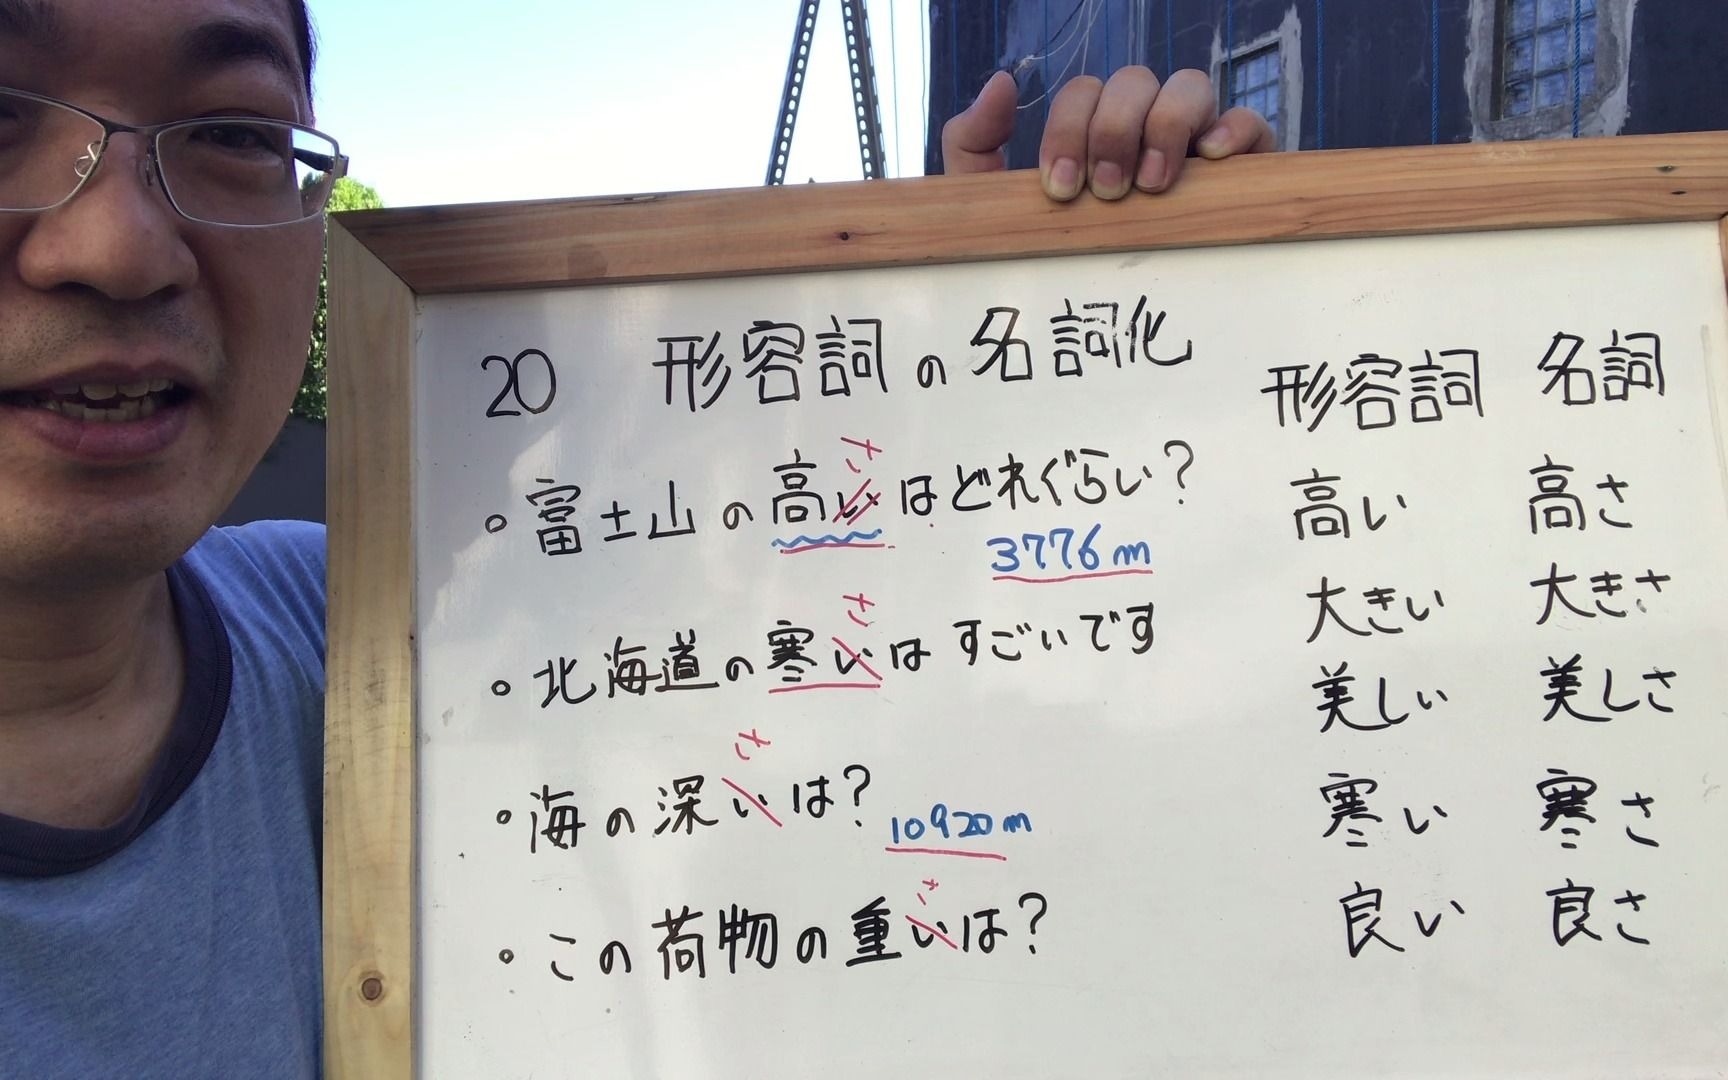 20 形容詞の名詞化
さ
。富士山の高いはどれぐらい?
3776m
さ
。北海道の寒いはすごいです
さ
・海の深いは?
10920m
さ
・この荷物の重いは?
形容詞 名詞
高い 高さ
大きい 大きさ
美しい 美しさ
寒い 寒さ
良い 良さ